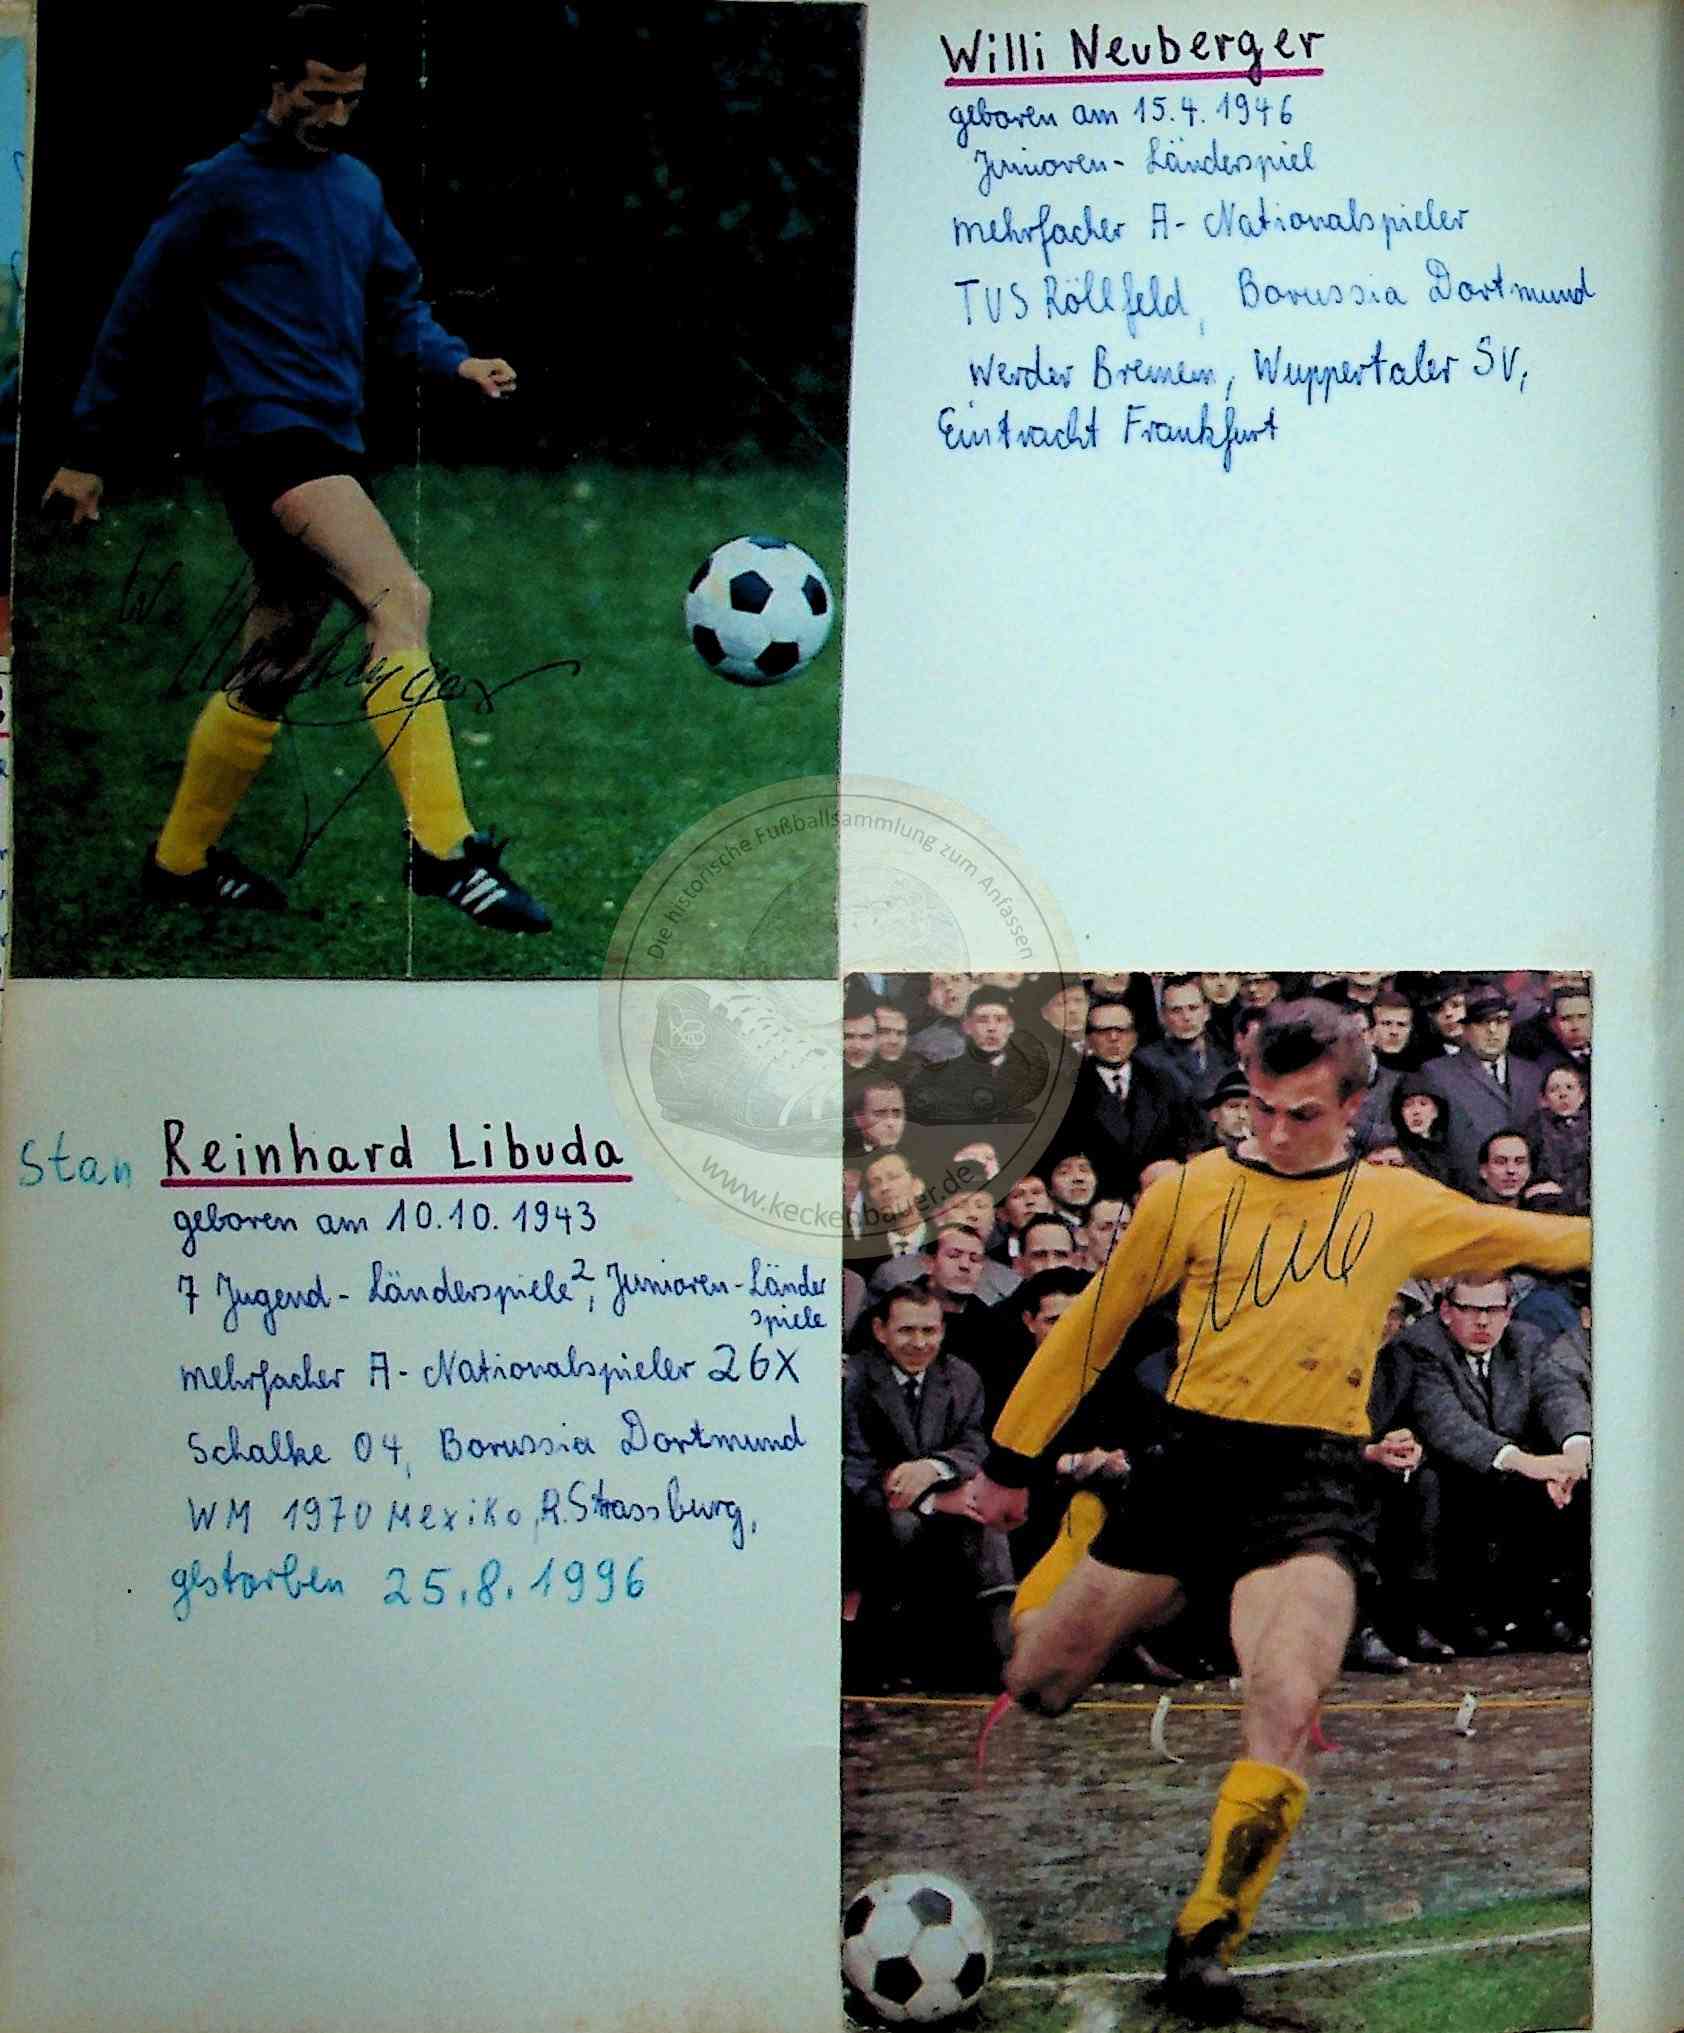 Willi Neuberger
geboren am 15.4.1946
Junioren- Länderspiel
mehrfacher A- Nationalspieler
TVS Röllfeld, Borussia Dortmund
Werder Bremen, Wuppertaler SV,
Eintracht Frankfurt
W. Neuberger
Die historische Fußballsammlung zum Anfassen
www.keckenbauer.de
Stan Reinhard Libuda
geboren am 10.10.1943
7 Jugend- Länderspiele, 2 Junioren-Länder
spiele
mehrfacher A- Nationalspieler 26X
Schalke 04, Borussia Dortmund
WM 1970 Mexiko, R. Strassburg,
gestorben 25.8.1996